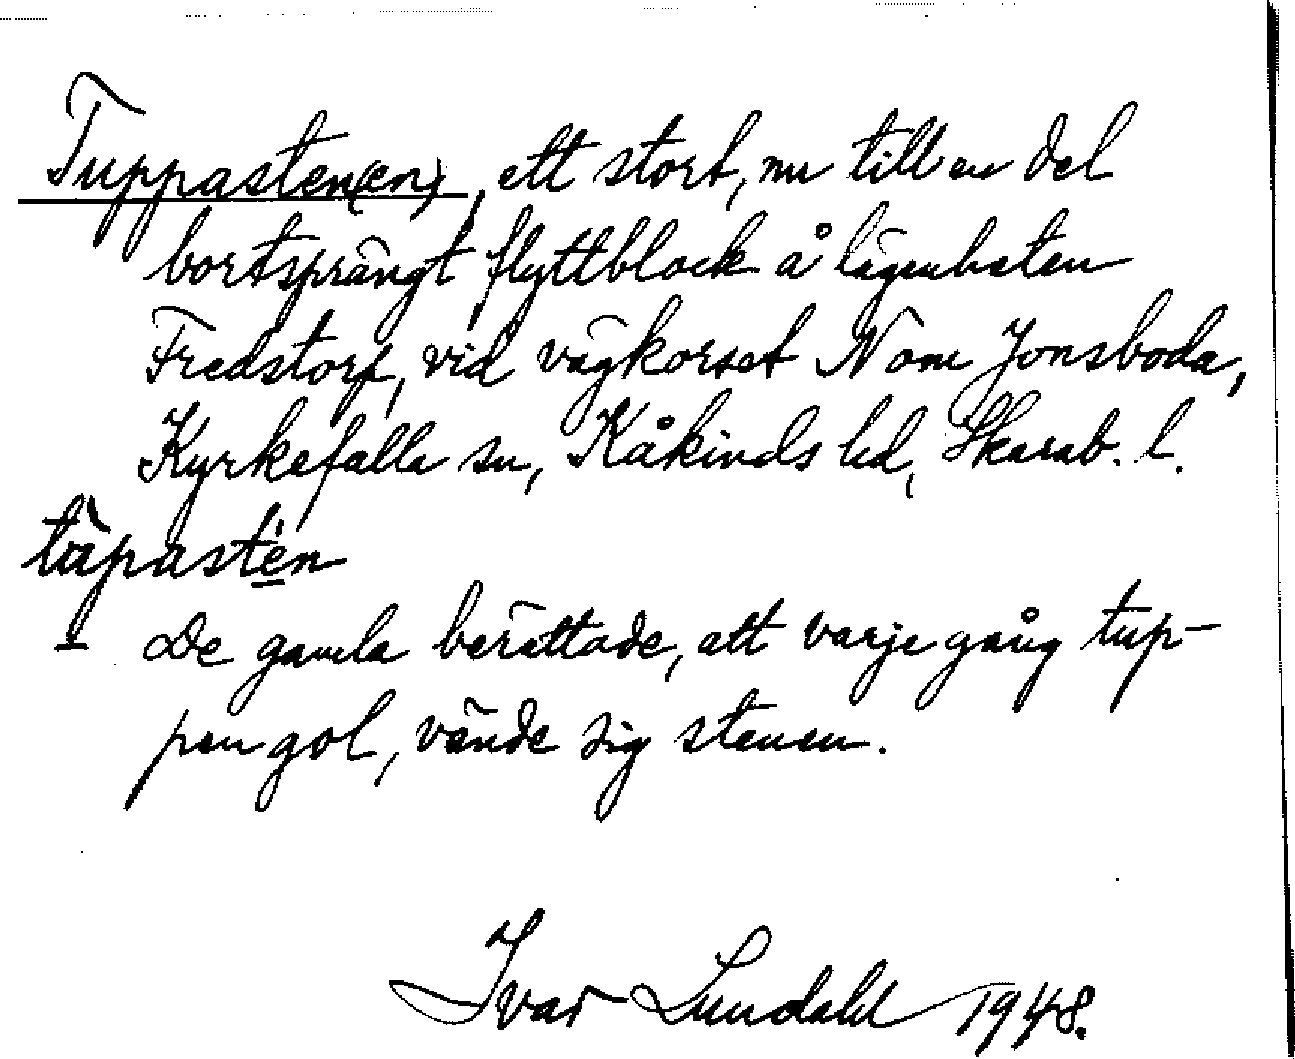 Tuppasten(en), ett stort, nu till en del
bortsprängt flyttblock å lägenheten
Fredstorp, vid vägkorset Norr Jonsboda,
Kyrkefalla sn, Kåkinds hd, Skarab. l.
tùpastén
De gamla berättade, att varje gång tup-
pen gol, vände sig stenen.
Ivar Lundahl 1948.